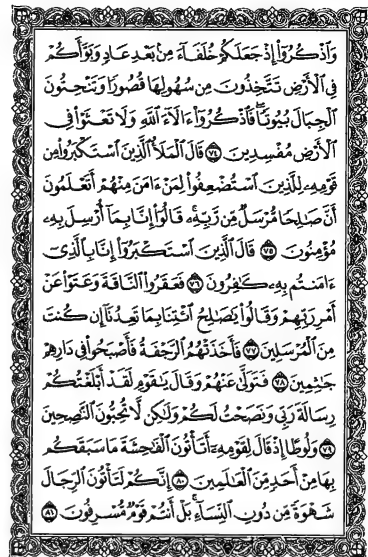 وَاذْكُرُوا إِذْ جَعَلَكُمْ خُلَفَاءَ مِنْ بَعْدِ عَادٍ وَبَوَّأَكُمْ
فِي الْأَرْضِ تَتَّخِذُونَ مِن سُهُولِهَا قُصُورًا وَتَنْحِتُونَ
الْجِبَالَ بُيُوتًا فَاذْكُرُوا ءَالَاءَ اللَّهِ وَلَا تَعْثَوْا فِي
الْأَرْضِ مُفْسِدِينَ ٧٤ قَالَ الْمَلَأُ الَّذِينَ اسْتَكْبَرُوا مِن
قَوْمِهِ لِلَّذِينَ اسْتُضْعِفُوا لِمَنْ ءَامَنَ مِنْهُمْ أَتَعْلَمُونَ
أَنَّ صَالِحًا مُرْسَلٌ مِن رَّبِّهِ قَالُوا إِنَّا بِمَا أُرْسِلَ بِهِ
مُؤْمِنُونَ ٧٥ قَالَ الَّذِينَ اسْتَكْبَرُوا إِنَّا بِالَّذِي
ءَامَنتُم بِهِ كَافِرُونَ ٧٦ فَعَقَرُوا النَّاقَةَ وَعَتَوْا عَنْ
أَمْرِ رَبِّهِمْ وَقَالُوا يَاصَالِحُ ائْتِنَا بِمَا تَعِدُنَا إِن كُنتَ
مِنَ الْمُرْسَلِينَ ٧٧ فَأَخَذَتْهُمُ الرَّجْفَةُ فَأَصْبَحُوا فِي دَارِهِمْ
جَاثِمِينَ ٧٨ فَتَوَلَّى عَنْهُمْ وَقَالَ يَاقَوْمِ لَقَدْ أَبْلَغْتُكُمْ
رِسَالَةَ رَبِّي وَنَصَحْتُ لَكُمْ وَلَٰكِن لَّا تُحِبُّونَ النَّاصِحِينَ
٧٩ وَلُوطًا إِذْ قَالَ لِقَوْمِهِ أَتَأْتُونَ الْفَاحِشَةَ مَا سَبَقَكُم
بِهَا مِنْ أَحَدٍ مِّنَ الْعَالَمِينَ ٨٠ إِنَّكُمْ لَتَأْتُونَ الرِّجَالَ
شَهْوَةً مِّن دُونِ النِّسَاءِ بَلْ أَنتُمْ قَوْمٌ مُّسْرِفُونَ ٨١